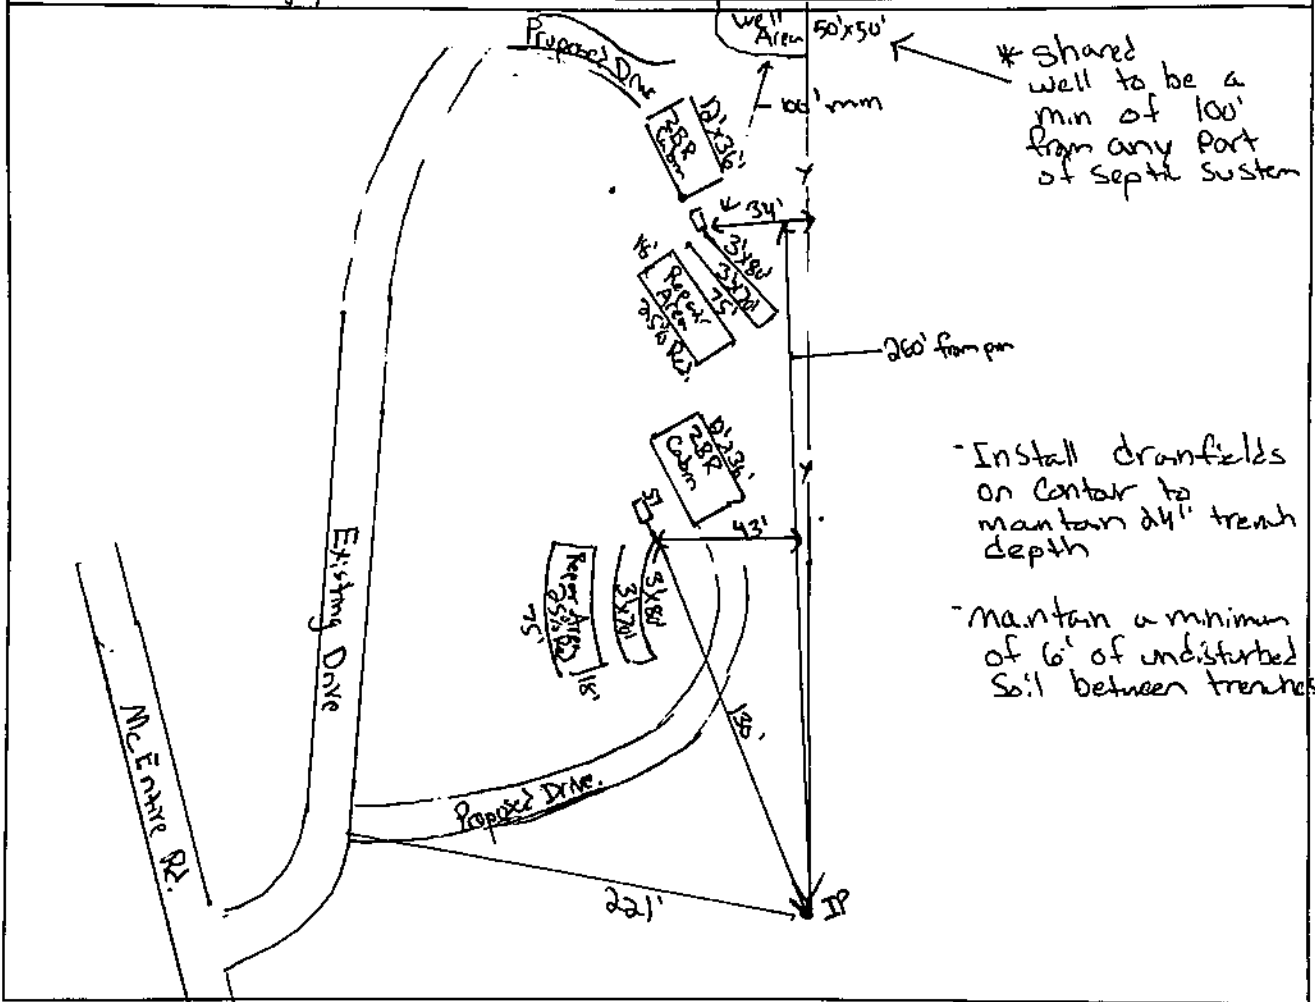 Proposed Drive
Well
Area
50'x50'
* Shared
well to be a
min of 100'
from any Part
of Septic System
100' min
12'x36'
2BR
Cabin
34'
3'x80'
3'x70'
75'
18'
Repair
Area
25% Rd.
260' from pin
12'x36'
2BR
Cabin
ST
43'
3'x80'
3'x70'
Repair Area
25% Rd
75'
18'
- Install drainfields
on Contour to
maintain 24" trench
depth
- Maintain a minimum
of 6' of undisturbed
Soil between trenches
Existing Drive
McEntire Rd.
130'
Proposed Drive.
221'
IP